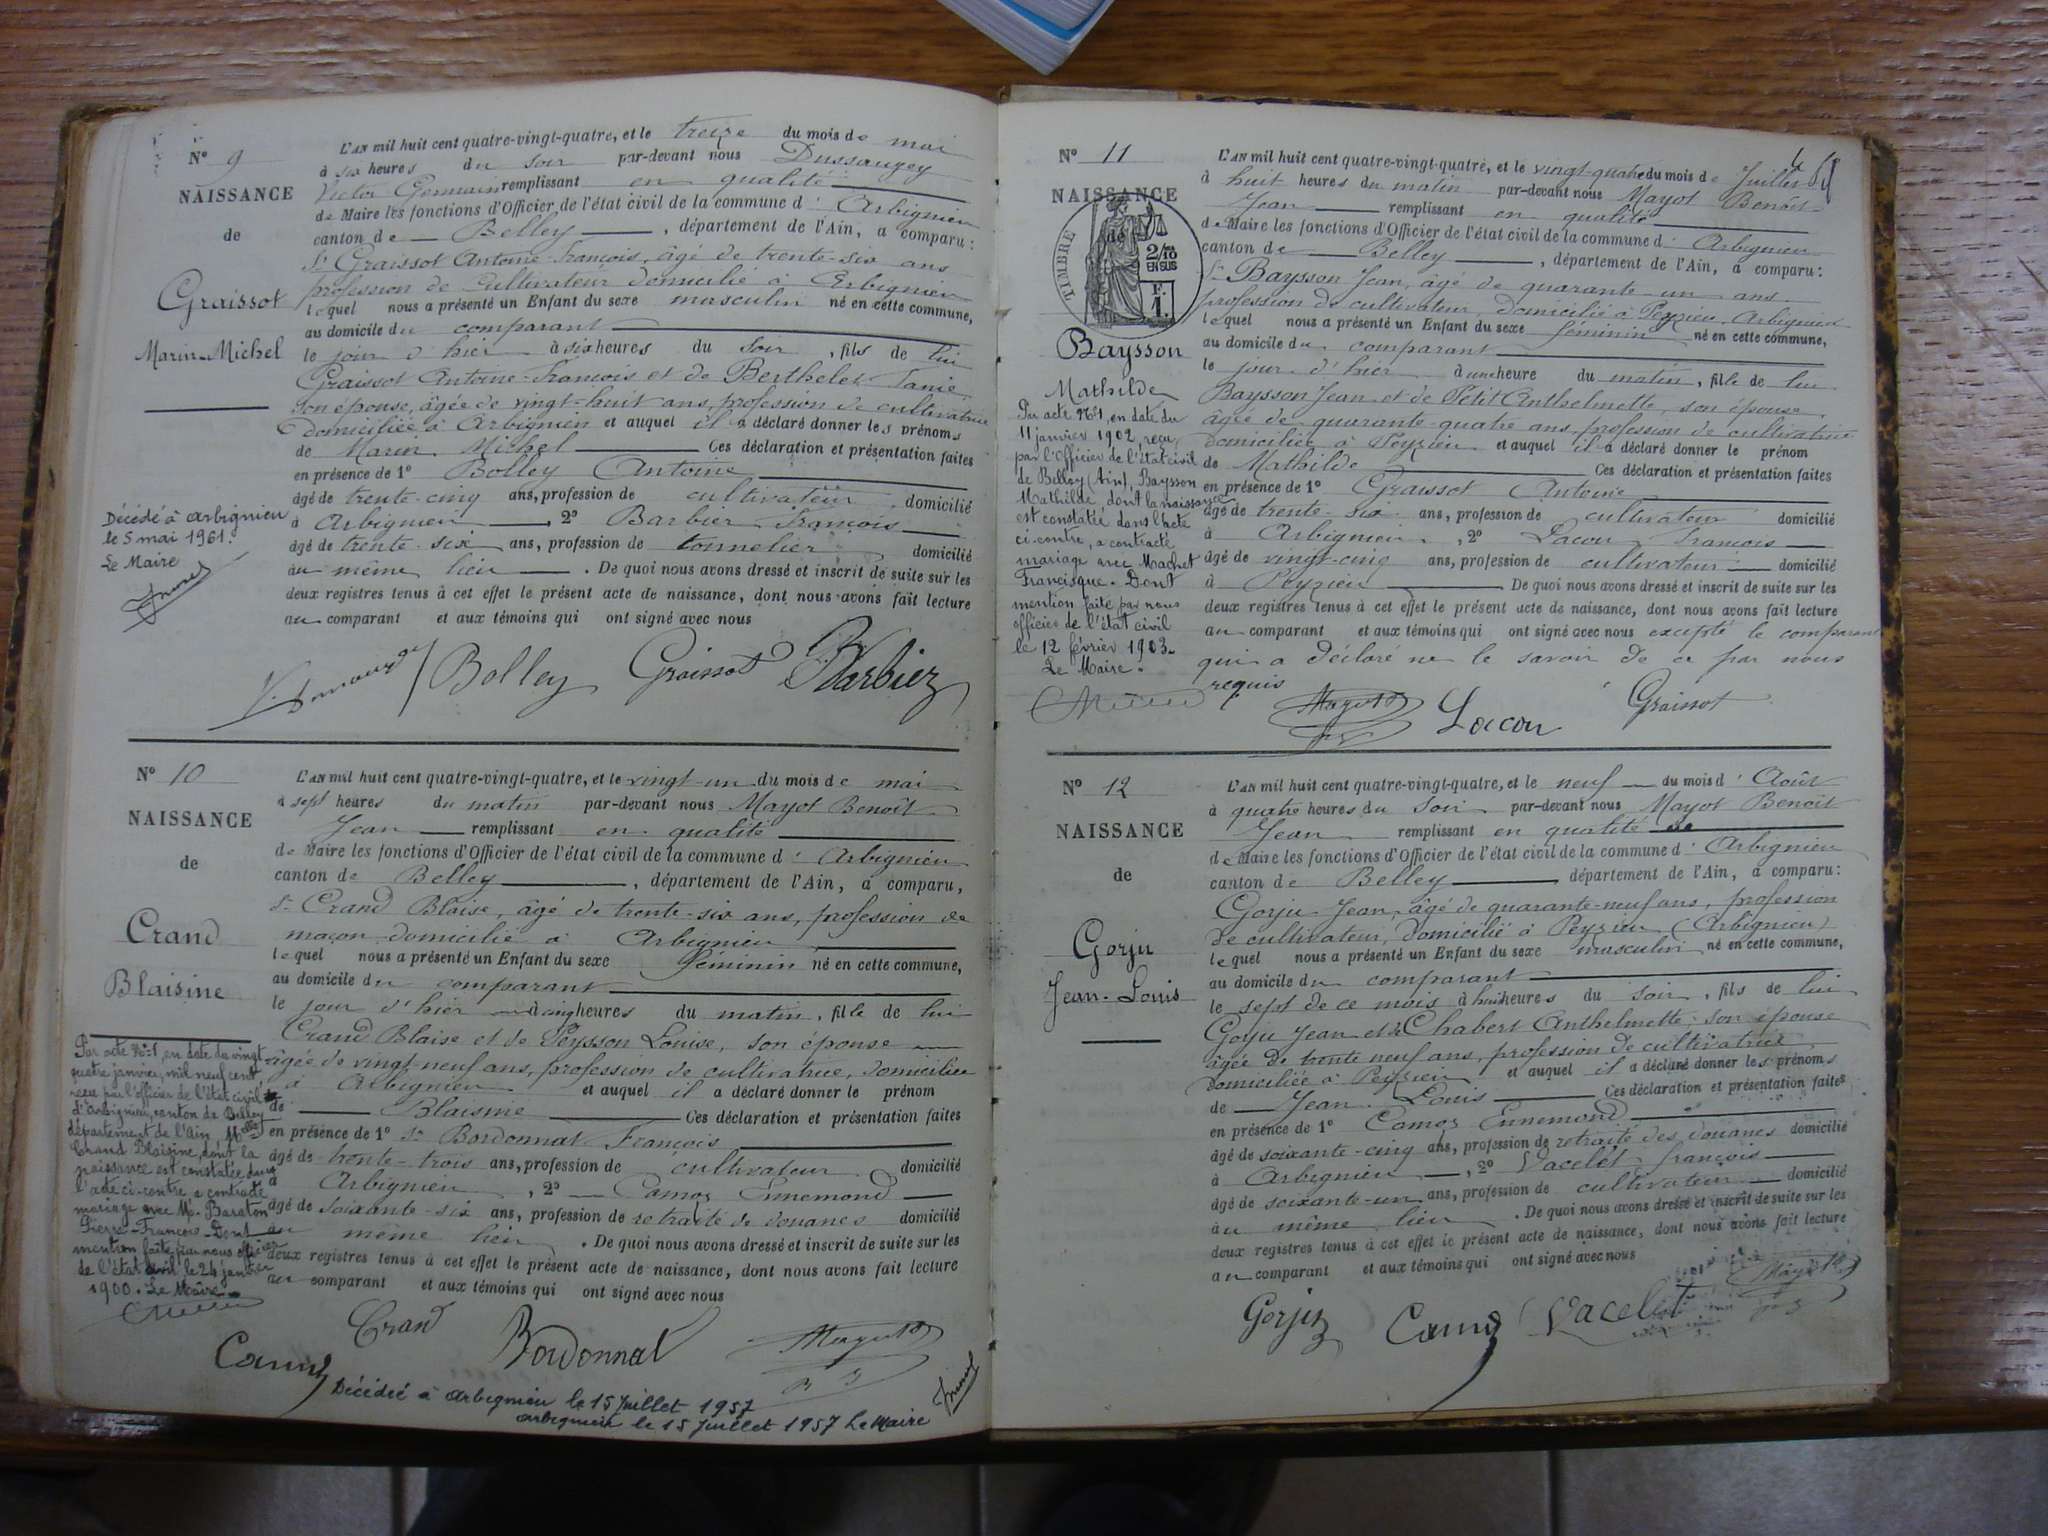 N° 9
NAISSANCE
de
Graissot
Marin-Michel
L'AN mil huit cent quatre-vingt-quatre, et le treize du mois de mai
à six heures du soir par-devant nous Dussaugey
Victor Germain remplissant en qualité
de Maire les fonctions d'Officier de l'état civil de la commune d' Arbignieu
canton de Belley, département de l'Ain, a comparu:
Sr Graissot Antoine-François, âgé de trente-six ans
profession de Cultivateur domicilié à Arbignieu
lequel nous a présenté un Enfant du sexe masculin né en cette commune,
au domicile du comparant
le jour d'hier à six heures du soir, fils de lui
Graissot Antoine-François et de Berthelet
son épouse, âgée de vingt-huit ans, profession de cultivatrice
domiciliée à Arbignieu et auquel il a déclaré donner les prénoms
de Marin Michel Ces déclaration et présentation faites
en présence de 1° Bolley Antoine
âgé de trente-cinq ans, profession de cultivateur domicilié
à Arbignieu, 2° Barbier François
âgé de trente-six ans, profession de tonnelier domicilié
au même lieu. De quoi nous avons dressé et inscrit de suite sur les
deux registres tenus à cet effet le présent acte de naissance, dont nous avons fait lecture
au comparant et aux témoins qui ont signé avec nous
Décédé à Arbignieu
le 5 mai 1961.
Le Maire
Bolley Graissot Barbier
N° 10
NAISSANCE
de
Crand
Blaisine
L'AN mil huit cent quatre-vingt-quatre, et le vingt-un du mois de mai
à sept heures du matin par-devant nous Mayot Benoît
Jean remplissant en qualité
de Maire les fonctions d'Officier de l'état civil de la commune d' Arbignieu
canton de Belley, département de l'Ain, a comparu,
Sr Crand Blaise, âgé de trente-six ans, profession de
maçon domicilié à Arbignieu
lequel nous a présenté un Enfant du sexe féminin né en cette commune,
au domicile du comparant
le jour d'hier à cinq heures du matin, fille de lui
Crand Blaise et de Peysson Louise, son épouse
âgée de vingt neuf ans, profession de cultivatrice, domiciliée
à Arbignieu et auquel il a déclaré donner le prénom
de Blaisine Ces déclaration et présentation faites
en présence de 1° Sr Bordonnat François
âgé de trente-trois ans, profession de cultivateur domicilié
à Arbignieu, 2° Camoz Ennemond
âgé de soixante-six ans, profession de retraité de douanes domicilié
au même lieu. De quoi nous avons dressé et inscrit de suite sur les
deux registres tenus à cet effet le présent acte de naissance, dont nous avons fait lecture
au comparant et aux témoins qui ont signé avec nous
Par acte N°1, en date du vingt-
quatre janvier, mil neuf cent
reçu par l'officier de l'état civil
d'Arbignieu, canton de Belley
département de l'Ain, Melle
Crand Blaisine, dont la
naissance est constatée dans
l'acte ci-contre a contracté
mariage avec Mr. Baraton
Pierre-François. Dont
mention faite par nous officier
de l'état civil le 24 janvier
1900. Le Maire.
Crand
Camoz Bordonnat Mayot
Décédée à Arbignieu le 15 juillet 1957
Arbignieu le 15 juillet 1957 Le Maire
N° 11
NAISSANCE
de
TIMBRE
2/10
EN SUS
F.
1.
Baysson
Mathilde
L'AN mil huit cent quatre-vingt-quatre, et le vingt-quatre du mois de Juillet
à huit heures du matin par-devant nous Mayot Benoît
Jean remplissant en qualité
de Maire les fonctions d'Officier de l'état civil de la commune d' Arbignieu
canton de Belley, département de l'Ain, a comparu:
Sr Baysson Jean, âgé de quarante-un ans
profession de cultivateur, domicilié à Peyzieu, Arbignieu
lequel nous a présenté un Enfant du sexe féminin né en cette commune,
au domicile du comparant
le jour d'hier à une heure du matin, fille de lui
Baysson Jean et de Petit Anthelmette, son épouse,
âgée de quarante-quatre ans, profession de cultivatrice
domiciliée à Peyzieu et auquel il a déclaré donner le prénom
de Mathilde Ces déclaration et présentation faites
en présence de 1° Graissot Antoine
âgé de trente-six ans, profession de cultivateur domicilié
à Arbignieu, 2° Lacou François
âgé de vingt-cinq ans, profession de cultivateur domicilié
à Peyzieu De quoi nous avons dressé et inscrit de suite sur les
deux registres tenus à cet effet le présent acte de naissance, dont nous avons fait lecture
au comparant et aux témoins qui ont signé avec nous excepté le comparant
qui a déclaré ne le savoir de ce par nous
requis
Par acte N°1, en date du
11 janvier 1902, reçu
par l'Officier de l'état civil
de Belley (Ain), Baysson
Mathilde, dont la naissance
est constatée dans l'acte
ci-contre, a contracté
mariage avec Machet
Francisque. Dont
mention faite par nous
officier de l'état civil
le 12 février 1903.
Le Maire.
Mayot Lacou Graissot
N° 12
NAISSANCE
de
Gorju
Jean-Louis
L'AN mil huit cent quatre-vingt-quatre, et le neuf du mois d' Août
à quatre heures du soir par-devant nous Mayot Benoît
Jean remplissant en qualité de
de Maire les fonctions d'Officier de l'état civil de la commune d' Arbignieu
canton de Belley, département de l'Ain, a comparu:
Gorju Jean, âgé de quarante-neuf ans, profession
de cultivateur, domicilié à Peyzieu (Arbignieu)
lequel nous a présenté un Enfant du sexe masculin né en cette commune,
au domicile du comparant
le sept de ce mois à huit heures du soir, fils de lui
Gorju Jean et de Chabert Anthelmette son épouse
âgée de trente neuf ans, profession de cultivatrice
domiciliée à Peyzieu et auquel il a déclaré donner les prénoms
de Jean Louis Ces déclaration et présentation faites
en présence de 1° Camoz Ennemond
âgé de soixante-cinq ans, profession de retraité des douanes domicilié
à Arbignieu, 2° Vacelet françois
âgé de soixante-un ans, profession de cultivateur domicilié
au même lieu. De quoi nous avons dressé et inscrit de suite sur les
deux registres tenus à cet effet le présent acte de naissance, dont nous avons fait lecture
au comparant et aux témoins qui ont signé avec nous
Gorju Camoz Vacelet Mayot